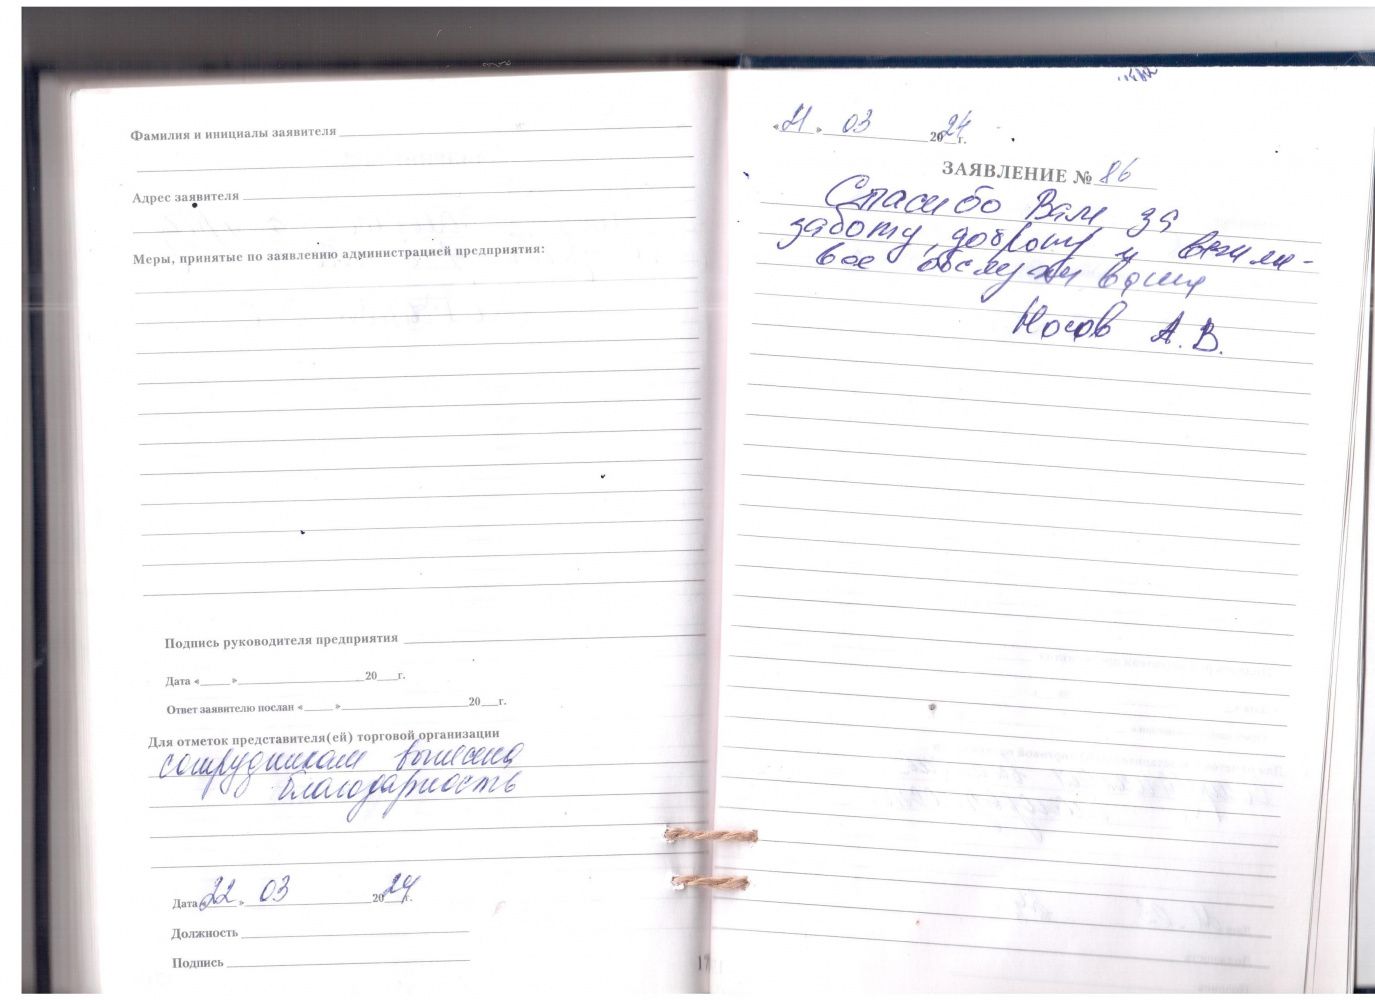 Фамилия и инициалы заявителя
Адрес заявителя
Меры, принятые по заявлению администрацией предприятия:
Подпись руководителя предприятия
Дата «____»____________20___г.
Ответ заявителю послан «____»____________20___г.
Для отметок представителя(ей) торговой организации
сотрудникам вынесена
благодарность
Дата «22» 03 2024г.
Должность
Подпись
«21» 03 2024г.
ЗАЯВЛЕНИЕ № 86
Спасибо Вам за
заботу, доброту и вежли-
вое обслуживание
Носов А.В.